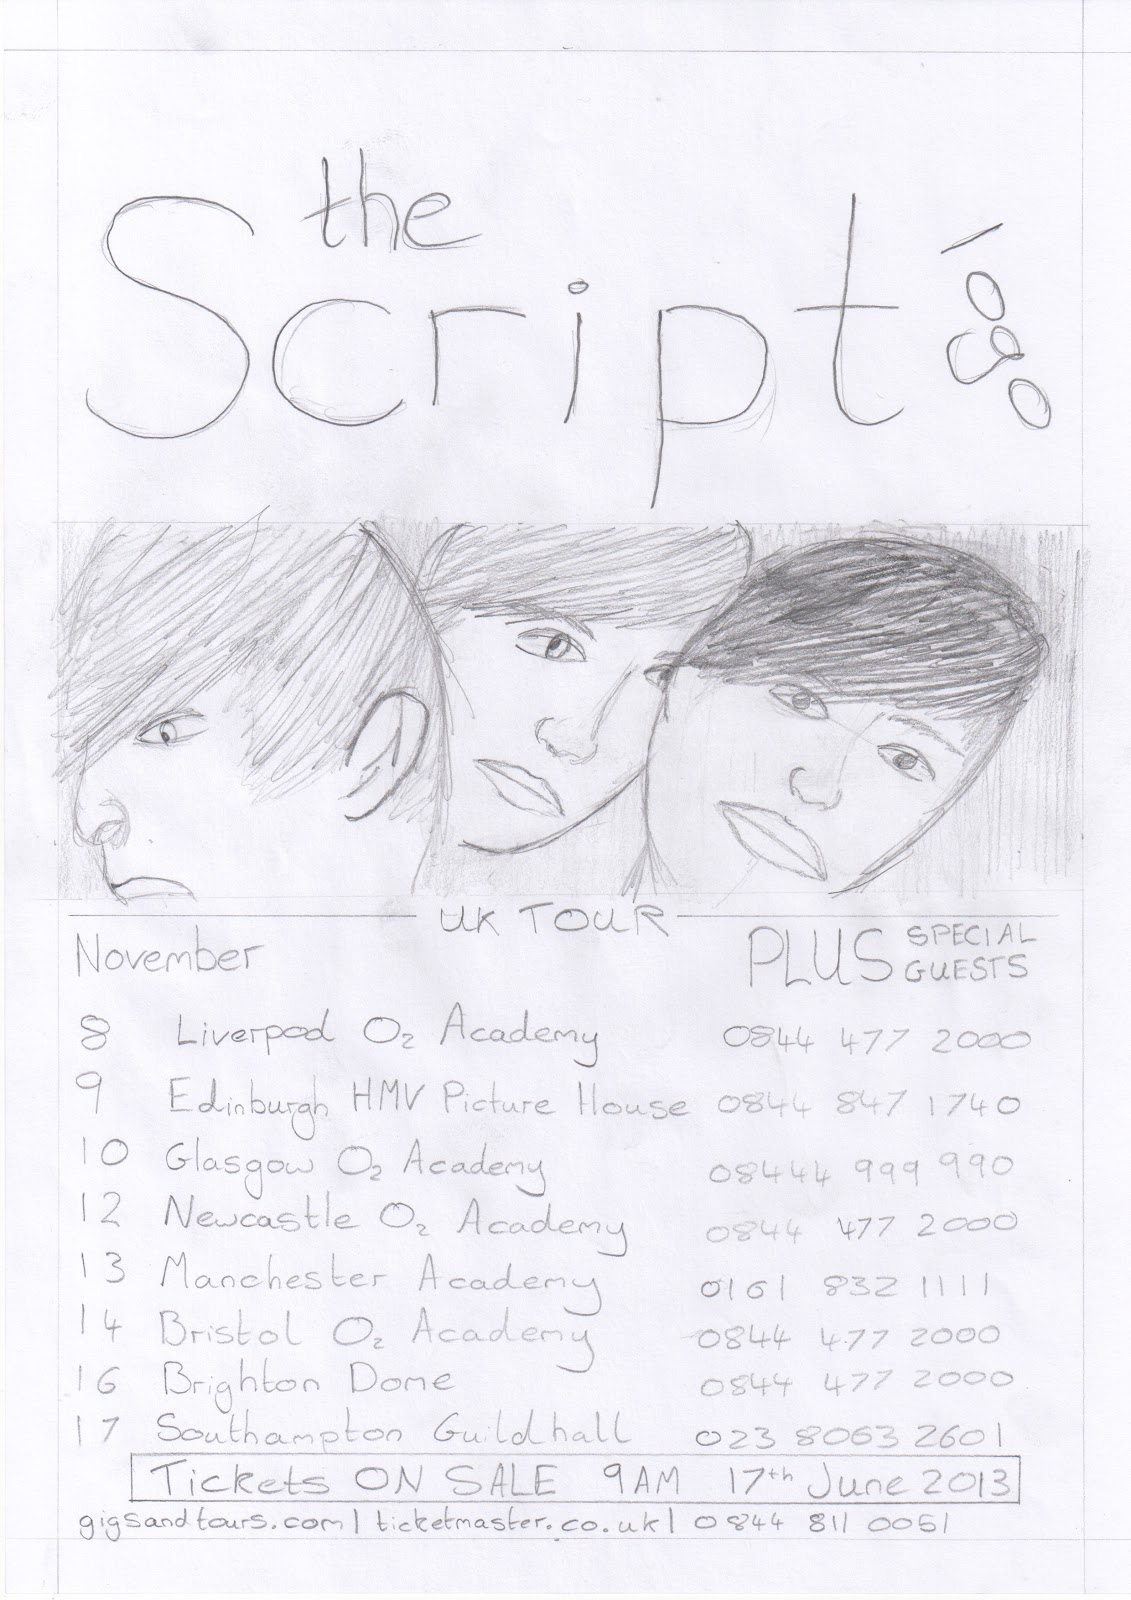 the
Script
UK TOUR
November
PLUS SPECIAL GUESTS
8 Liverpool O2 Academy 0844 477 2000
9 Edinburgh HMV Picture House 0844 847 1740
10 Glasgow O2 Academy 08444 999 990
12 Newcastle O2 Academy 0844 477 2000
13 Manchester Academy 0161 832 1111
14 Bristol O2 Academy 0844 477 2000
16 Brighton Dome 0844 477 2000
17 Southampton Guildhall 023 8063 2601
Tickets ON SALE 9AM 17th June 2013
gigsandtours.com | ticketmaster.co.uk | 0844 811 0051